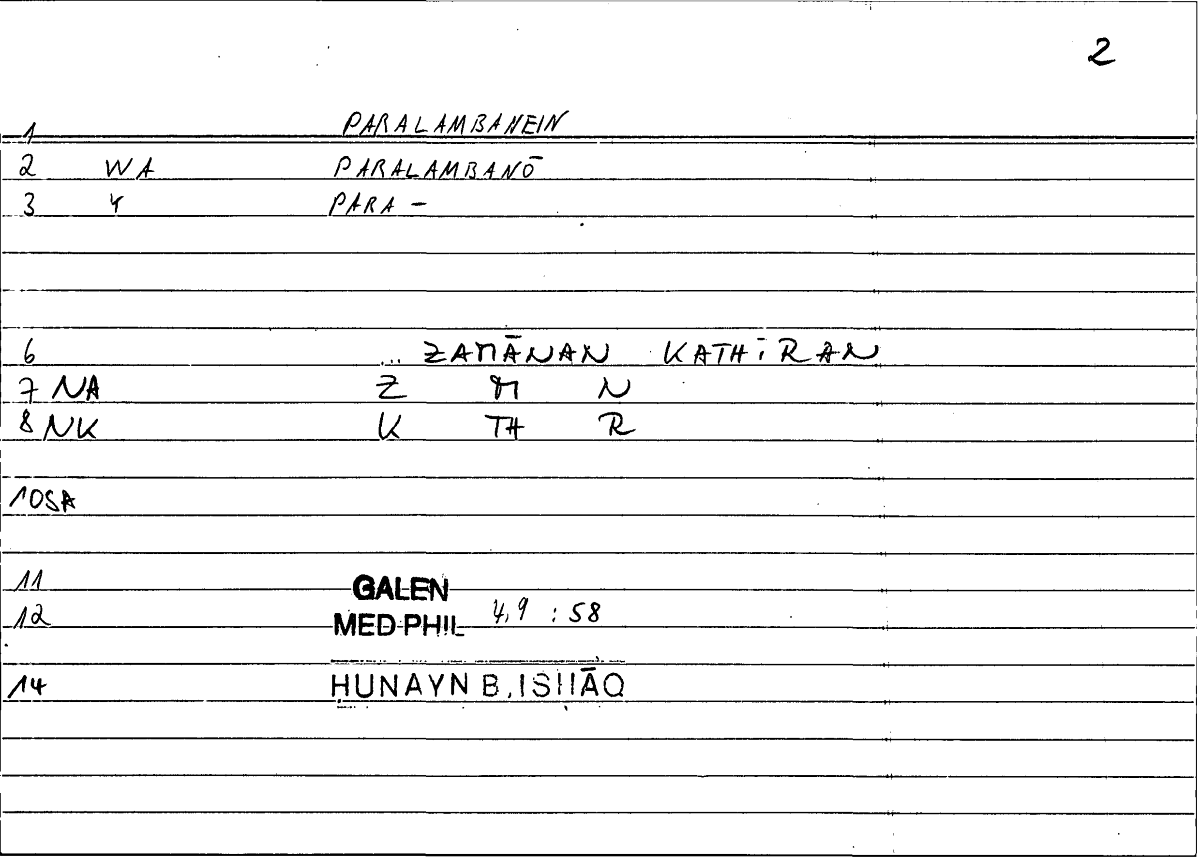 2
1 PARALAMBANEIN
2 WA PARALAMBANŌ
3 Y PARA -
6 ... ZAMĀNAN KATHĪRAN
7 NA Z M N
8 NK K TH R
10SA
11 GALEN
12 MED PHIL 4,9 : 58
14 ḤUNAYN B. ISḤĀQ